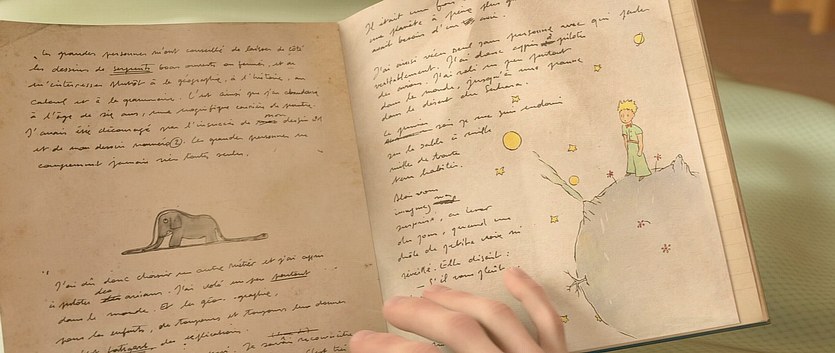 Les grandes personnes m'ont conseillé de laisser de côté
les dessins de serpents boas ouverts ou fermés, et de
m'intéresser plutôt à la géographie, à l'histoire, au
calcul et à la grammaire. C'est ainsi que j'ai abandonné,
à l'âge de six ans, une magnifique carrière de peintre.
J'avais été découragé par l'insuccès de mon dessin
et de mon dessin numéro 2. Les grandes personnes ne
comprennent jamais rien toutes seules.
J'ai dû donc choisir un autre métier et j'ai appris
à piloter des avions. J'ai volé un peu partout
dans le monde. Et la géographie,
pour les enfants, de toujours et toujours leur donner
des explications.
Je savais reconnaître
Il était une fois
une planète à peine plus
avait besoin d'un ami.
J'ai ainsi vécu seul sans personne avec qui parler
véritablement. J'ai donc appris à piloter
des avions. J'ai volé un peu partout
dans le monde, jusqu'à une panne
dans le désert du Sahara.
Le premier soir je me suis endormi
sur le sable à mille
mille de toute
terre habitée.
Alors vous
imaginez ma
surprise, au lever
du jour, quand une
drôle de petite voix m'a
réveillé. Elle disait :
S'il vous plaît